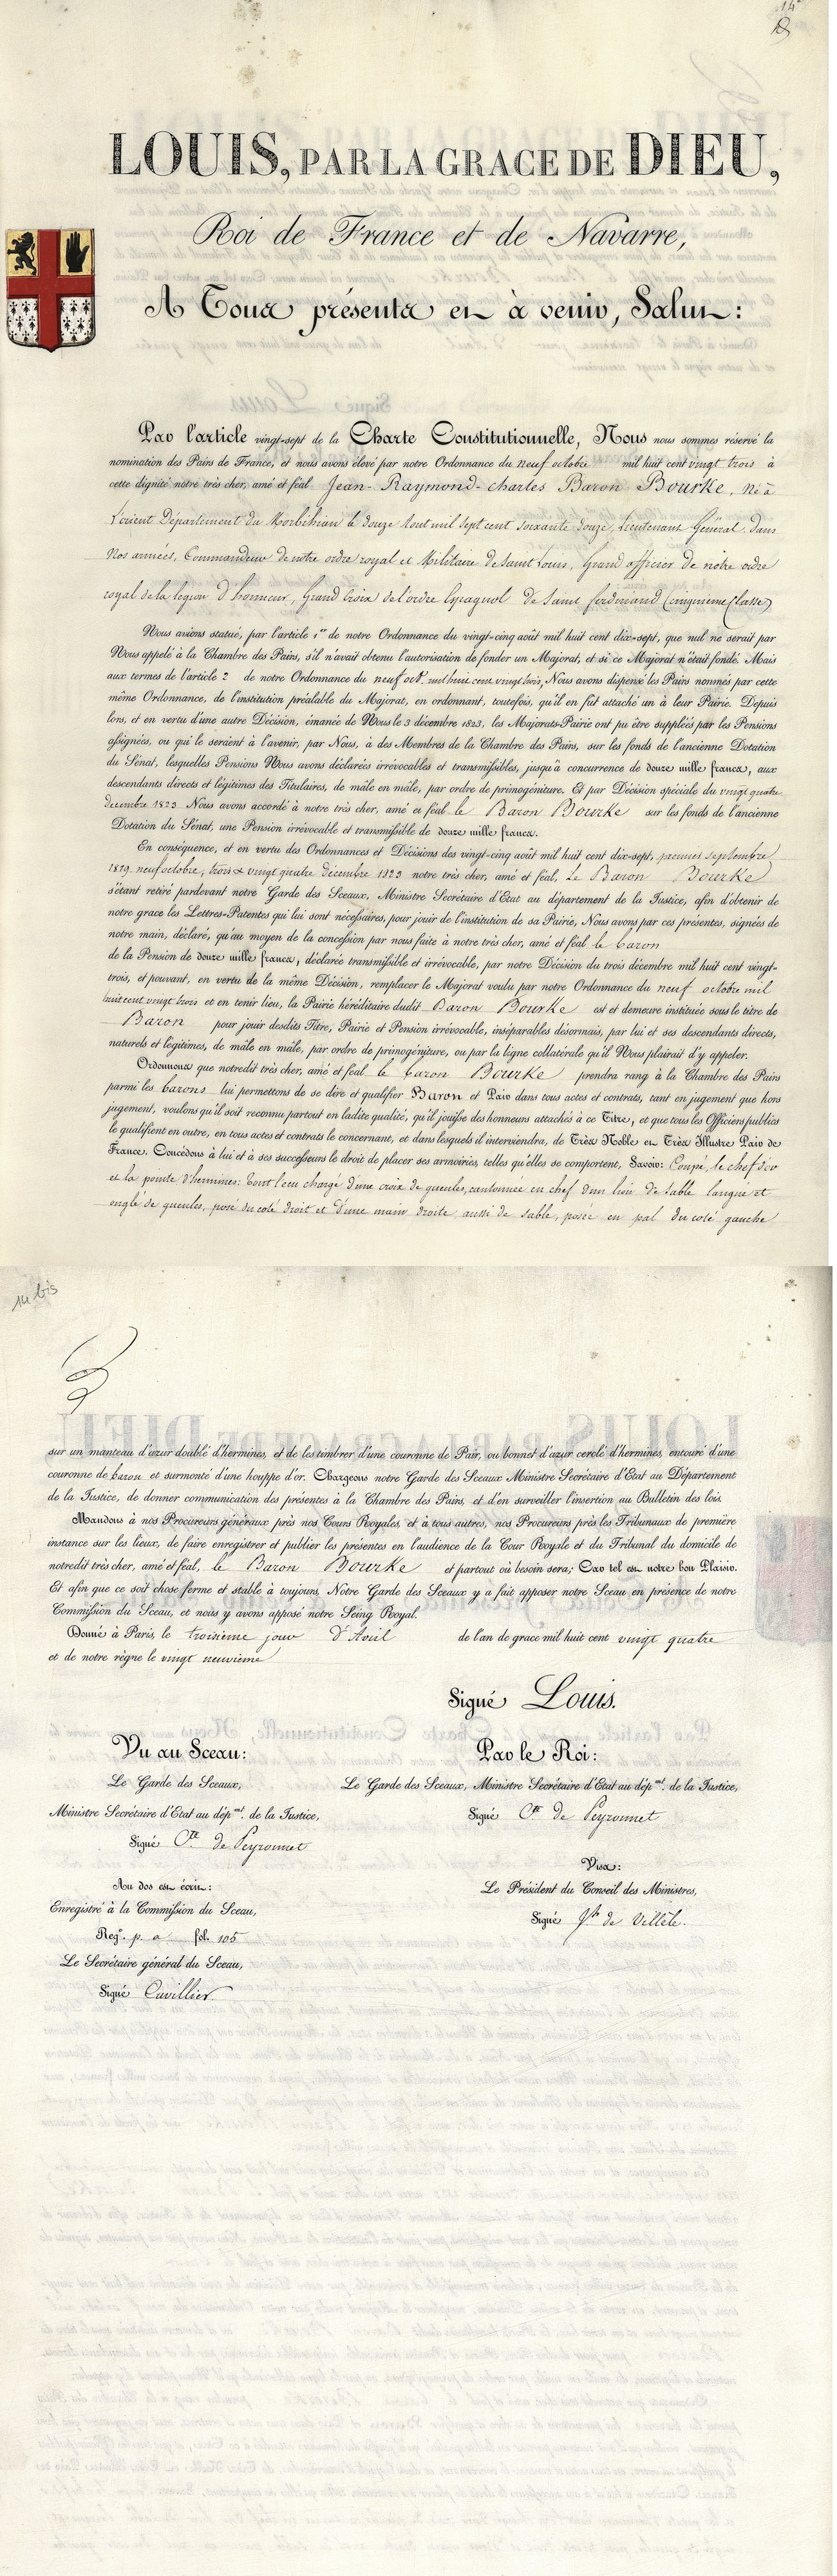 14
LOUIS, PAR LA GRACE DE DIEU,
Roi de France et de Navarre,
A Tous présents et à venir, Salut :
Par l'article vingt-sept de la Charte Constitutionnelle, Nous nous sommes réservé la
nomination des Pairs de France, et nous avons élevé par notre Ordonnance du neuf octobre mil huit cent vingt trois à
cette dignité notre très cher, amé et féal Jean-Raymond-charles Baron Bourke, Né à
l'orient Département du Morbihan le douze aout mil sept cent soixante douze, Lieutenant Général dans
Nos armées, Commandeur de notre ordre royal et Militaire de saint Louis, Grand officier de notre ordre
royal de la legion d'honneur, Grand Croix de l'ordre Espagnol de Saint ferdinand (cinquieme Classe)
Nous avions statué, par l'article 1er de notre Ordonnance du vingt-cinq août mil huit cent dix-sept, que nul ne serait par
Nous appelé à la Chambre des Pairs, s'il n'avait obtenu l'autorisation de fonder un Majorat, et si ce Majorat n'était fondé. Mais
aux termes de l'article 2 de notre Ordonnance du neuf oct. mil huit cent vingt trois, Nous avons dispensé les Pairs nommés par cette
même Ordonnance, de l'institution préalable du Majorat, en ordonnant, toutefois, qu'il en fût attaché un à leur Pairie. Depuis
lors, et en vertu d'une autre Décision, émanée de Nous le 3 décembre 1823, les Majorats-Pairie ont pu être suppléés par les Pensions
assignées, ou qui le seraient à l'avenir, par Nous, à des Membres de la Chambre des Pairs, sur les fonds de l'ancienne Dotation
du Sénat, lesquelles Pensions Nous avons déclarées irrévocables et transmissibles, jusqu'à concurrence de douze mille francs, aux
descendants directs et légitimes des Titulaires, de mâle en mâle, par ordre de primogéniture. Et par Décision spéciale du vingt quatre
decembre 1823 Nous avons accordé à notre très cher, amé et féal le Baron Bourke sur les fonds de l'ancienne
Dotation du Sénat, une Pension irrévocable et transmissible de douze mille francs.
En conséquence, et en vertu des Ordonnances et Décisions des vingt-cinq août mil huit cent dix-sept, premier septembre
1819 neuf octobre, trois & vingt quatre décembre 1823 notre très cher, amé et féal, Le Baron Bourke
s'étant retiré pardevant notre Garde des Sceaux, Ministre Secrétaire d'Etat au département de la Justice, afin d'obtenir de
notre grace les Lettres-Patentes qui lui sont nécessaires, pour jouir de l'institution de sa Pairie, Nous avons par ces présentes, signées de
notre main, déclaré, qu'au moyen de la concession par nous faite à notre très cher, amé et féal le baron
de la Pension de douze mille francs, déclarée transmissible et irrévocable, par notre Décision du trois décembre mil huit cent vingt-
trois, et pouvant, en vertu de la même Décision, remplacer le Majorat voulu par notre Ordonnance du neuf octobre mil
huit cent vingt trois et en tenir lieu, la Pairie héréditaire dudit Baron Bourke est et demeure instituée sous le titre de
Baron pour jouir desdits Titre, Pairie et Pension irrévocable, inséparables désormais, par lui et ses descendants directs,
naturels et légitimes, de mâle en mâle, par ordre de primogéniture, ou par la ligne collatérale qu'il Nous plairait d'y appeler.
Ordonnons que notredit très cher, amé et féal le baron Bourke prendra rang à la Chambre des Pairs
parmi les barons lui permettons de se dire et qualifier Baron et Pair dans tous actes et contrats, tant en jugement que hors
jugement, voulons qu'il soit reconnu partout en ladite qualité, qu'il jouisse des honneurs attachés à ce Titre, et que tous les Officiers publics
le qualifient en outre, en tous actes et contrats le concernant, et dans lesquels il interviendra, de Très Noble et Très Illustre Pair de
France. Concédons à lui et à ses successeurs le droit de placer ses armoiries, telles qu'elles se comportent, Savoir: Coupé, le chef d'or
et la pointe d'hermines: tout l'ecu chargé d'une croix de gueules, cantonnée en chef d'un lion de sable langué et
onglé de gueules, posé du coté droit et d'une main droite aussi de sable, posée en pal du coté gauche
14 bis
sur un manteau d'azur doublé d'hermines, et de les timbrer d'une couronne de Pair, ou bonnet d'azur cerclé d'hermines, entouré d'une
couronne de baron et surmonté d'une houppe d'or. Chargeons notre Garde des Sceaux Ministre Secrétaire d'Etat au Département
de la Justice, de donner communication des présentes à la Chambre des Pairs, et d'en surveiller l'insertion au Bulletin des lois.
Mandons à nos Procureurs généraux près nos Cours Royales, et à tous autres, nos Procureurs près les Tribunaux de première
instance sur les lieux, de faire enregistrer et publier les présentes en l'audience de la Cour Royale et du Tribunal du domicile de
notredit très cher, amé et féal, le Baron Bourke et partout où besoin sera; Car tel est notre bon Plaisir.
Et afin que ce soit chose ferme et stable à toujours, Notre Garde des Sceaux y a fait apposer notre Sceau en présence de notre
Commission du Sceau, et nous y avons apposé notre Seing Royal.
Donné à Paris, le troisieme jour d'Avril de l'an de grace mil huit cent vingt quatre
et de notre règne le vingt neuvieme
Signé Louis.
Vu au Sceau:
Le Garde des Sceaux,
Ministre Secrétaire d'Etat au dép.mt de la Justice,
Signé Cte de Peyronnet
Au dos est écrit:
Enregistré à la Commission du Sceau,
Reg.e p. a fol. 105
Le Secrétaire général du Sceau,
Signé Cuvillier
Par le Roi:
Le Garde des Sceaux, Ministre Secrétaire d'Etat au dép.mt de la Justice,
Signé Cte de Peyronnet
Visa:
Le Président du Conseil des Ministres,
Signé Jh de Villèle.